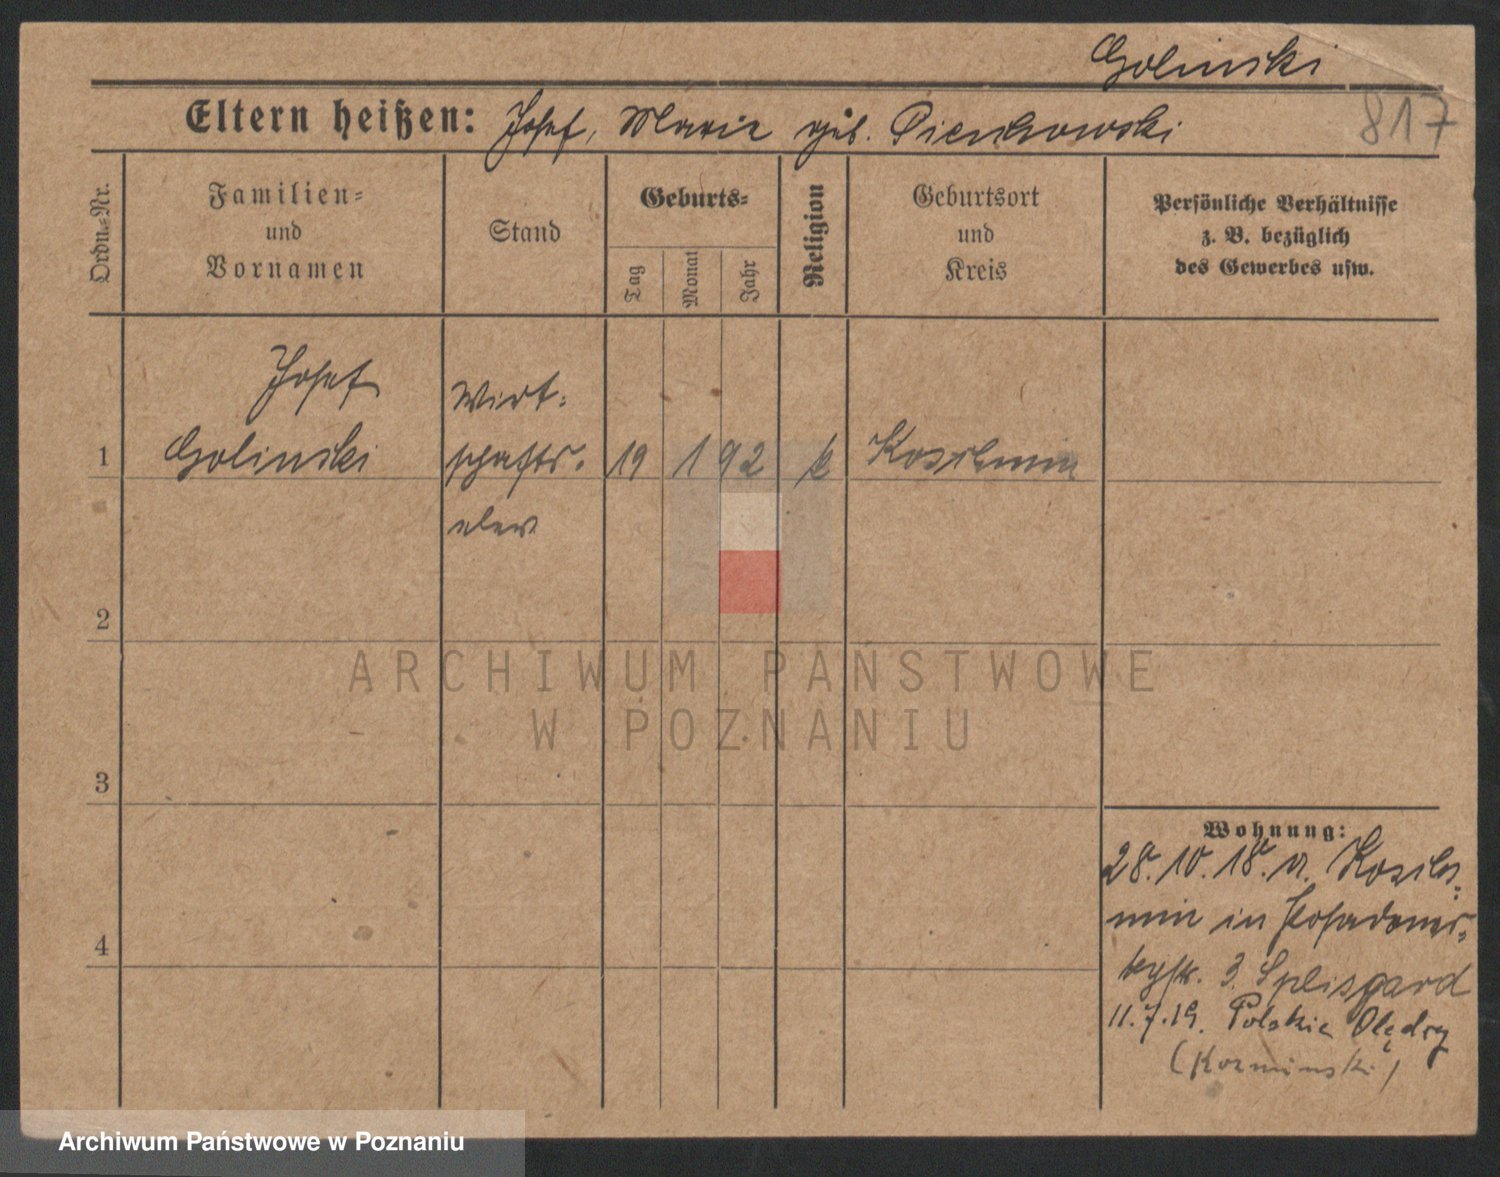 Golinski
817
Eltern heißen: Josef, Marie geb. Pienkowski
Ordn.=Nr.
Familien=
und
Vornamen
Stand
Geburts=
Tag
Monat
Jahr
Religion
Geburtsort
und
Kreis
Persönliche Verhältnisse
z. B. bezüglich
des Gewerbes usw.
Josef
Wirt-
1 Golinski schafts- 19 1 92 k Koschmin
eleve
2
ARCHIWUM PAŃSTWOWE
W POZNANIU
3
Wohnung:
28.10.18. v. Kosch-
min in
3.
4
11.7.19. Polskie Olędry
(Kozminski)
Archiwum Państwowe w Poznaniu